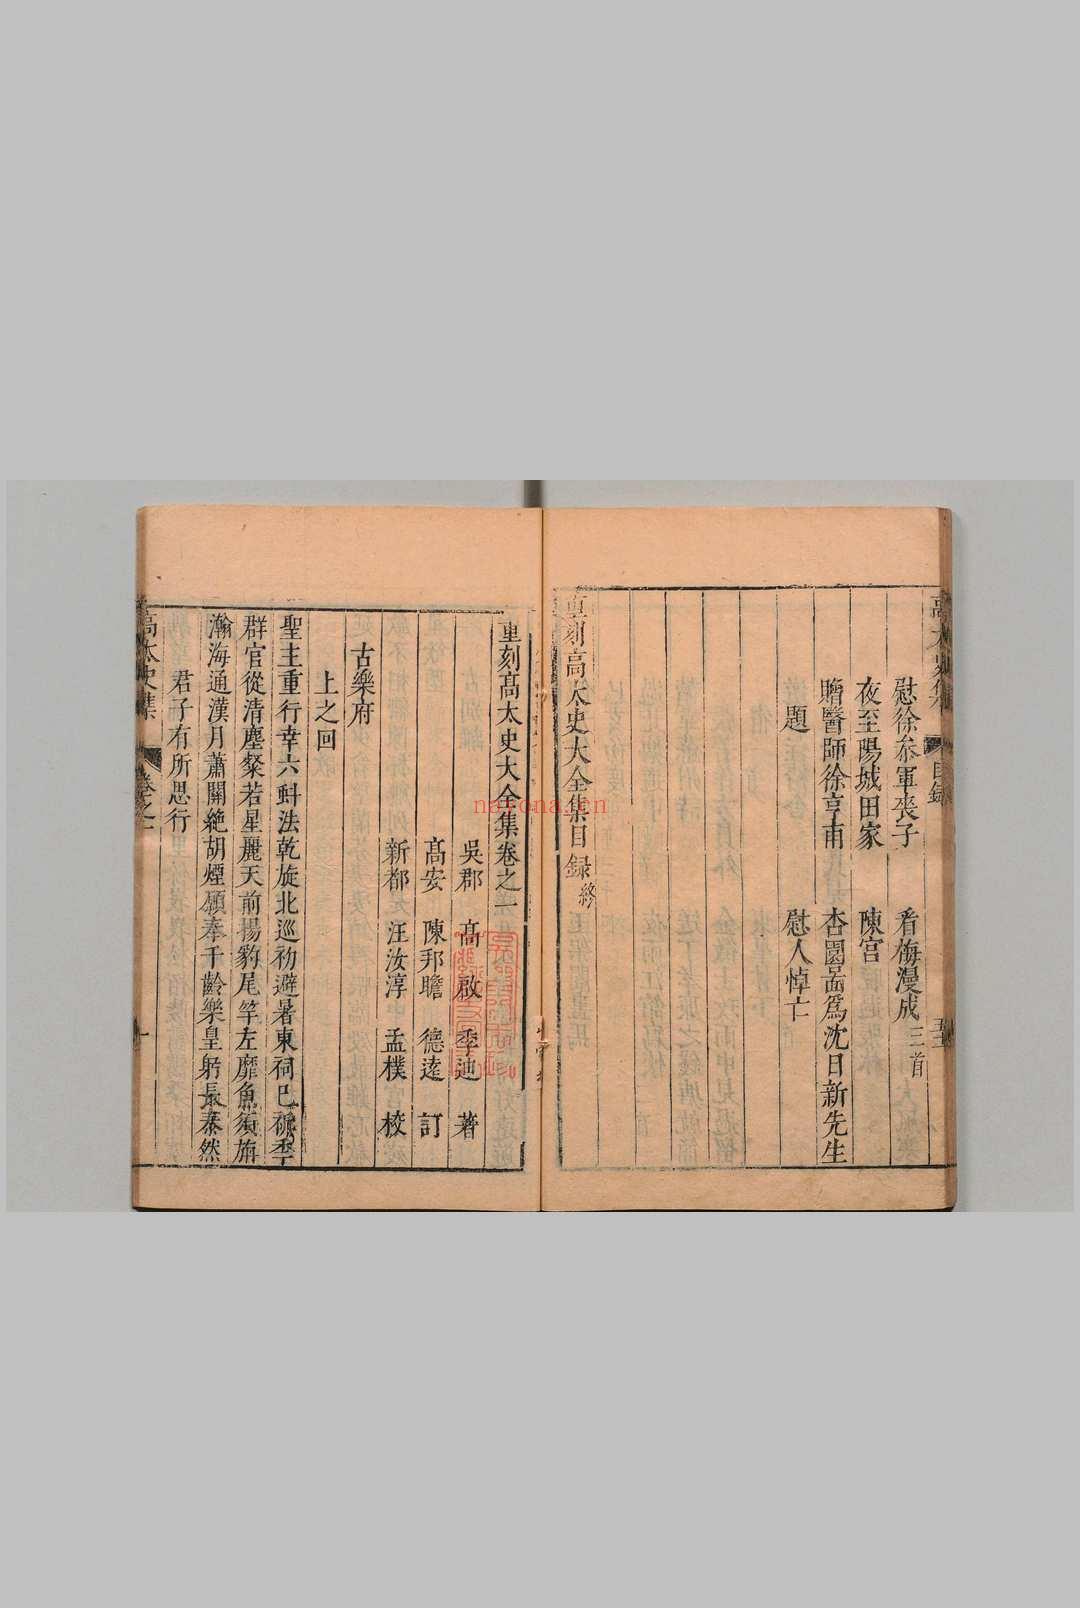 高太史集
目錄
慰徐叅軍喪子 看梅漫成三首
夜至陽城田家 陳宮
贈醫師徐亨甫 杏園啚爲沈日新先生
題 慰人悼亡
重刻高太史大全集目錄終
重刻高太史大全集卷之一
吳郡 高啟 季迪 著
高安 陳邦瞻 德遠 訂
新都 汪汝淳 孟樸 校
古樂府
上之回
聖主重行幸六蚪法乾旋北巡初避暑東祠巳祈季
群官從清塵粲若星麗天前揚豹尾竿左靡魚須旃
瀚海通漢月蕭關絶胡煙願奉千齡樂皇躬長泰然
君子有所思行
高太史集
卷之一
一
nayona.cn